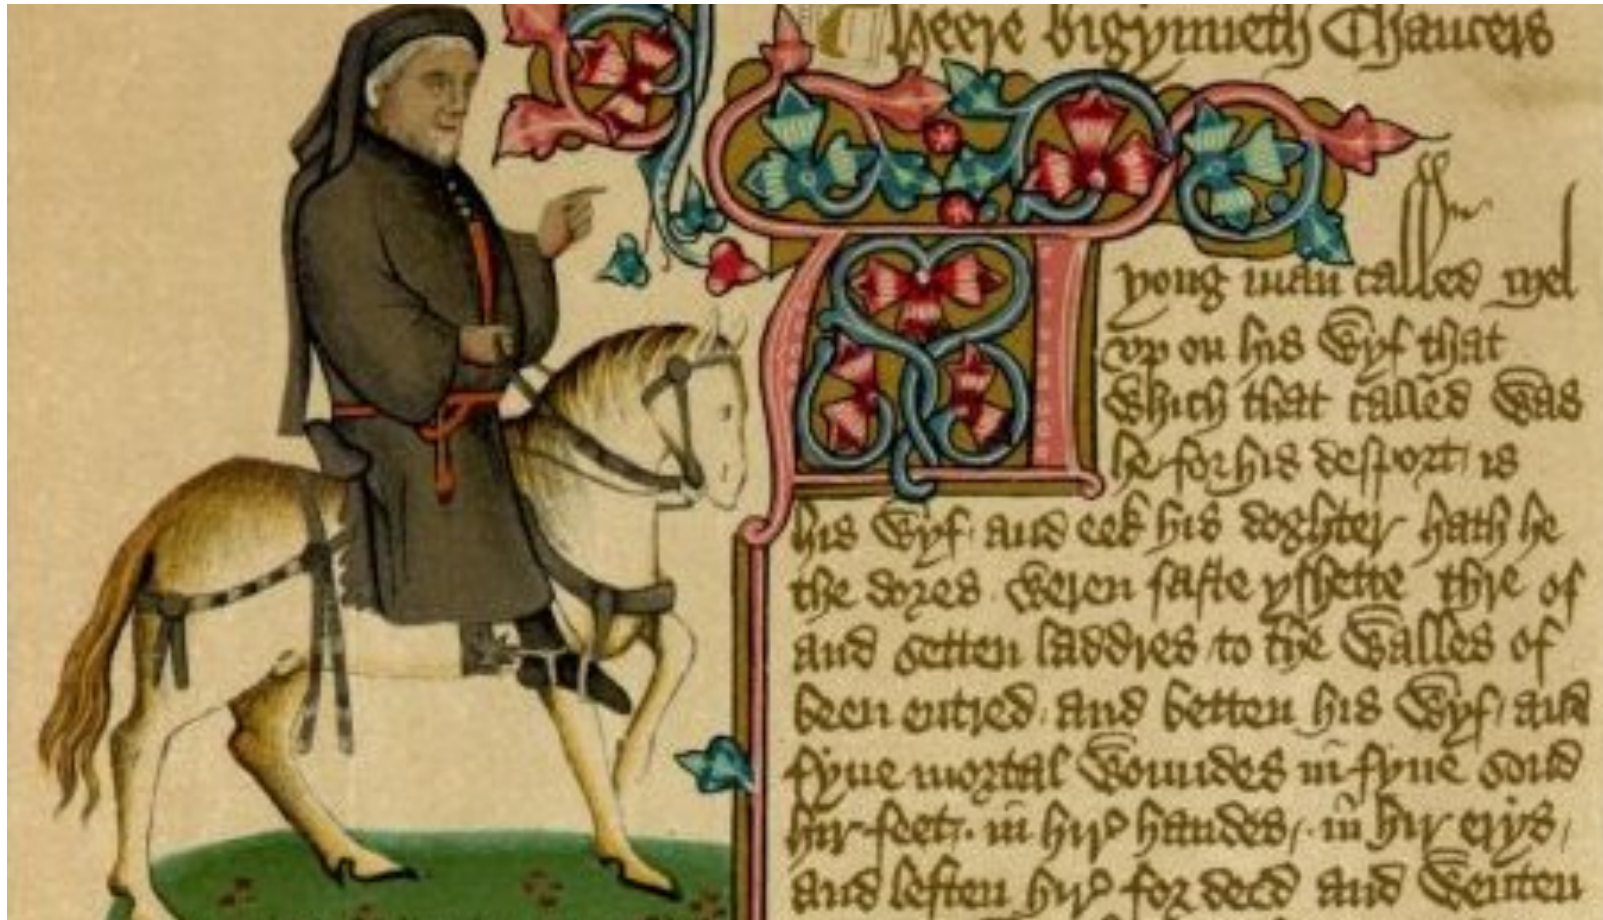 Heere bigynneth Chaucers
yong man called Mel
vp on his Wyf that
Which that called Was
he for his desport is
his Wyf and eek his doghter hath he
the dores weren faste yshette thre of
and setten laddres to the Walles of
been entred and betten his Wyf and
fyue mortal Woundes in fyue sond
hir feet in hir handes in hir erys
and leften hir for deed and Wenten